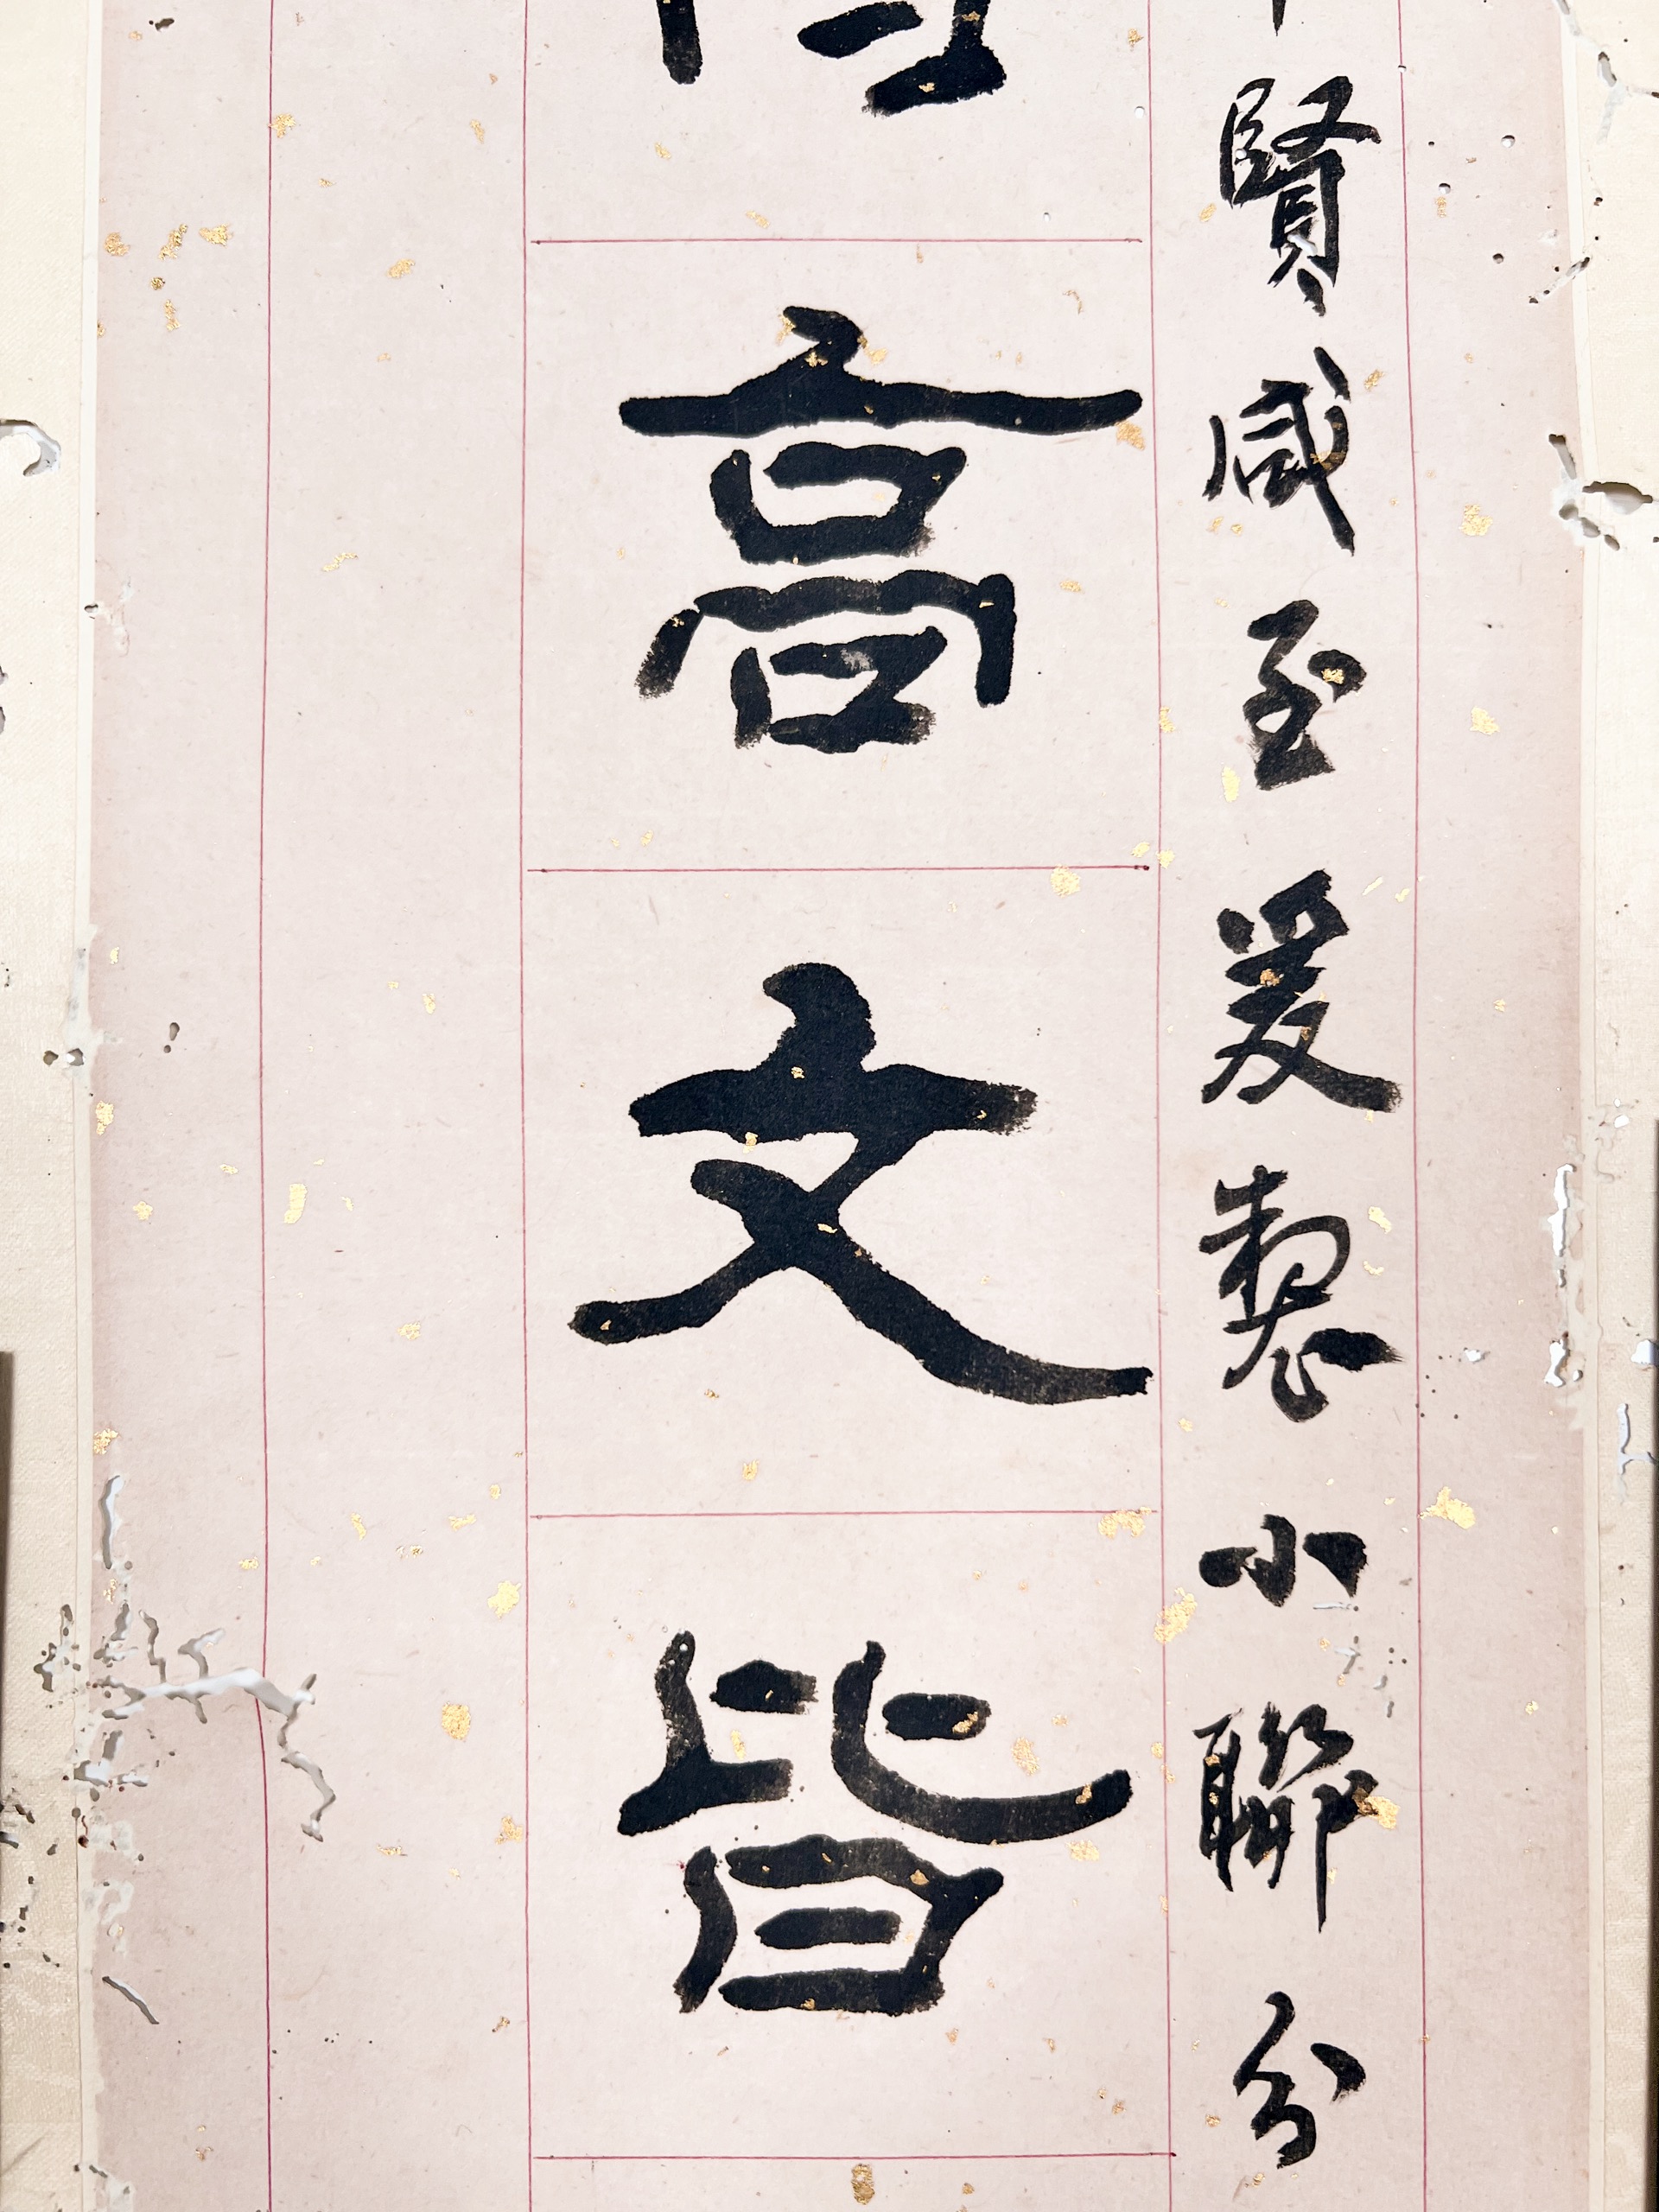 賢咸至爰製小聯分
高文皆